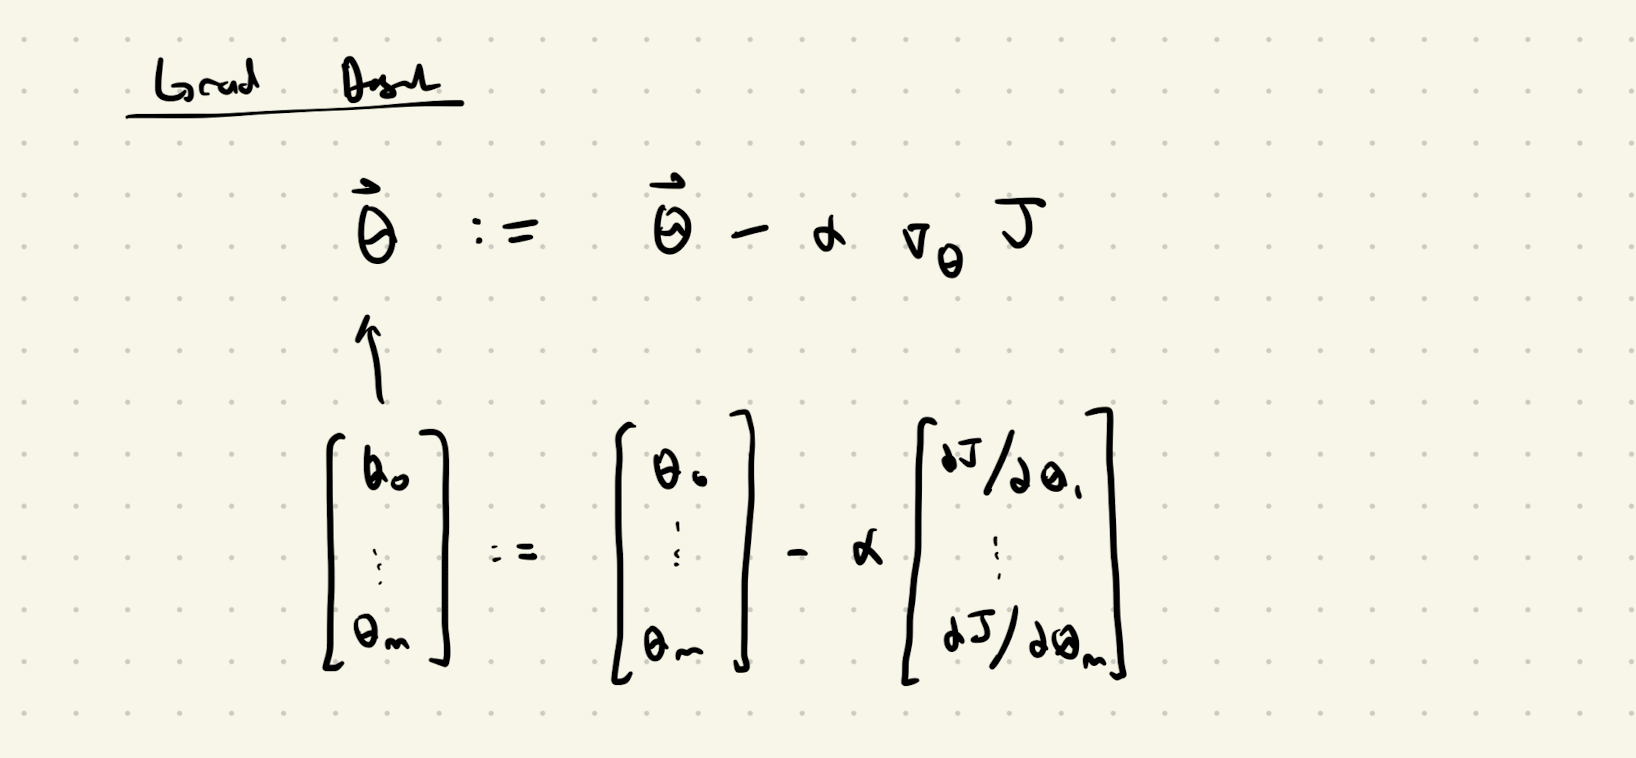 Grad Desent
θ⃗ := θ⃗ - α ∇θ J
↑
[θ₀ ⋮ θₘ] := [θ₀ ⋮ θₘ] - α [dJ/dθ₁ ⋮ dJ/dθₘ]